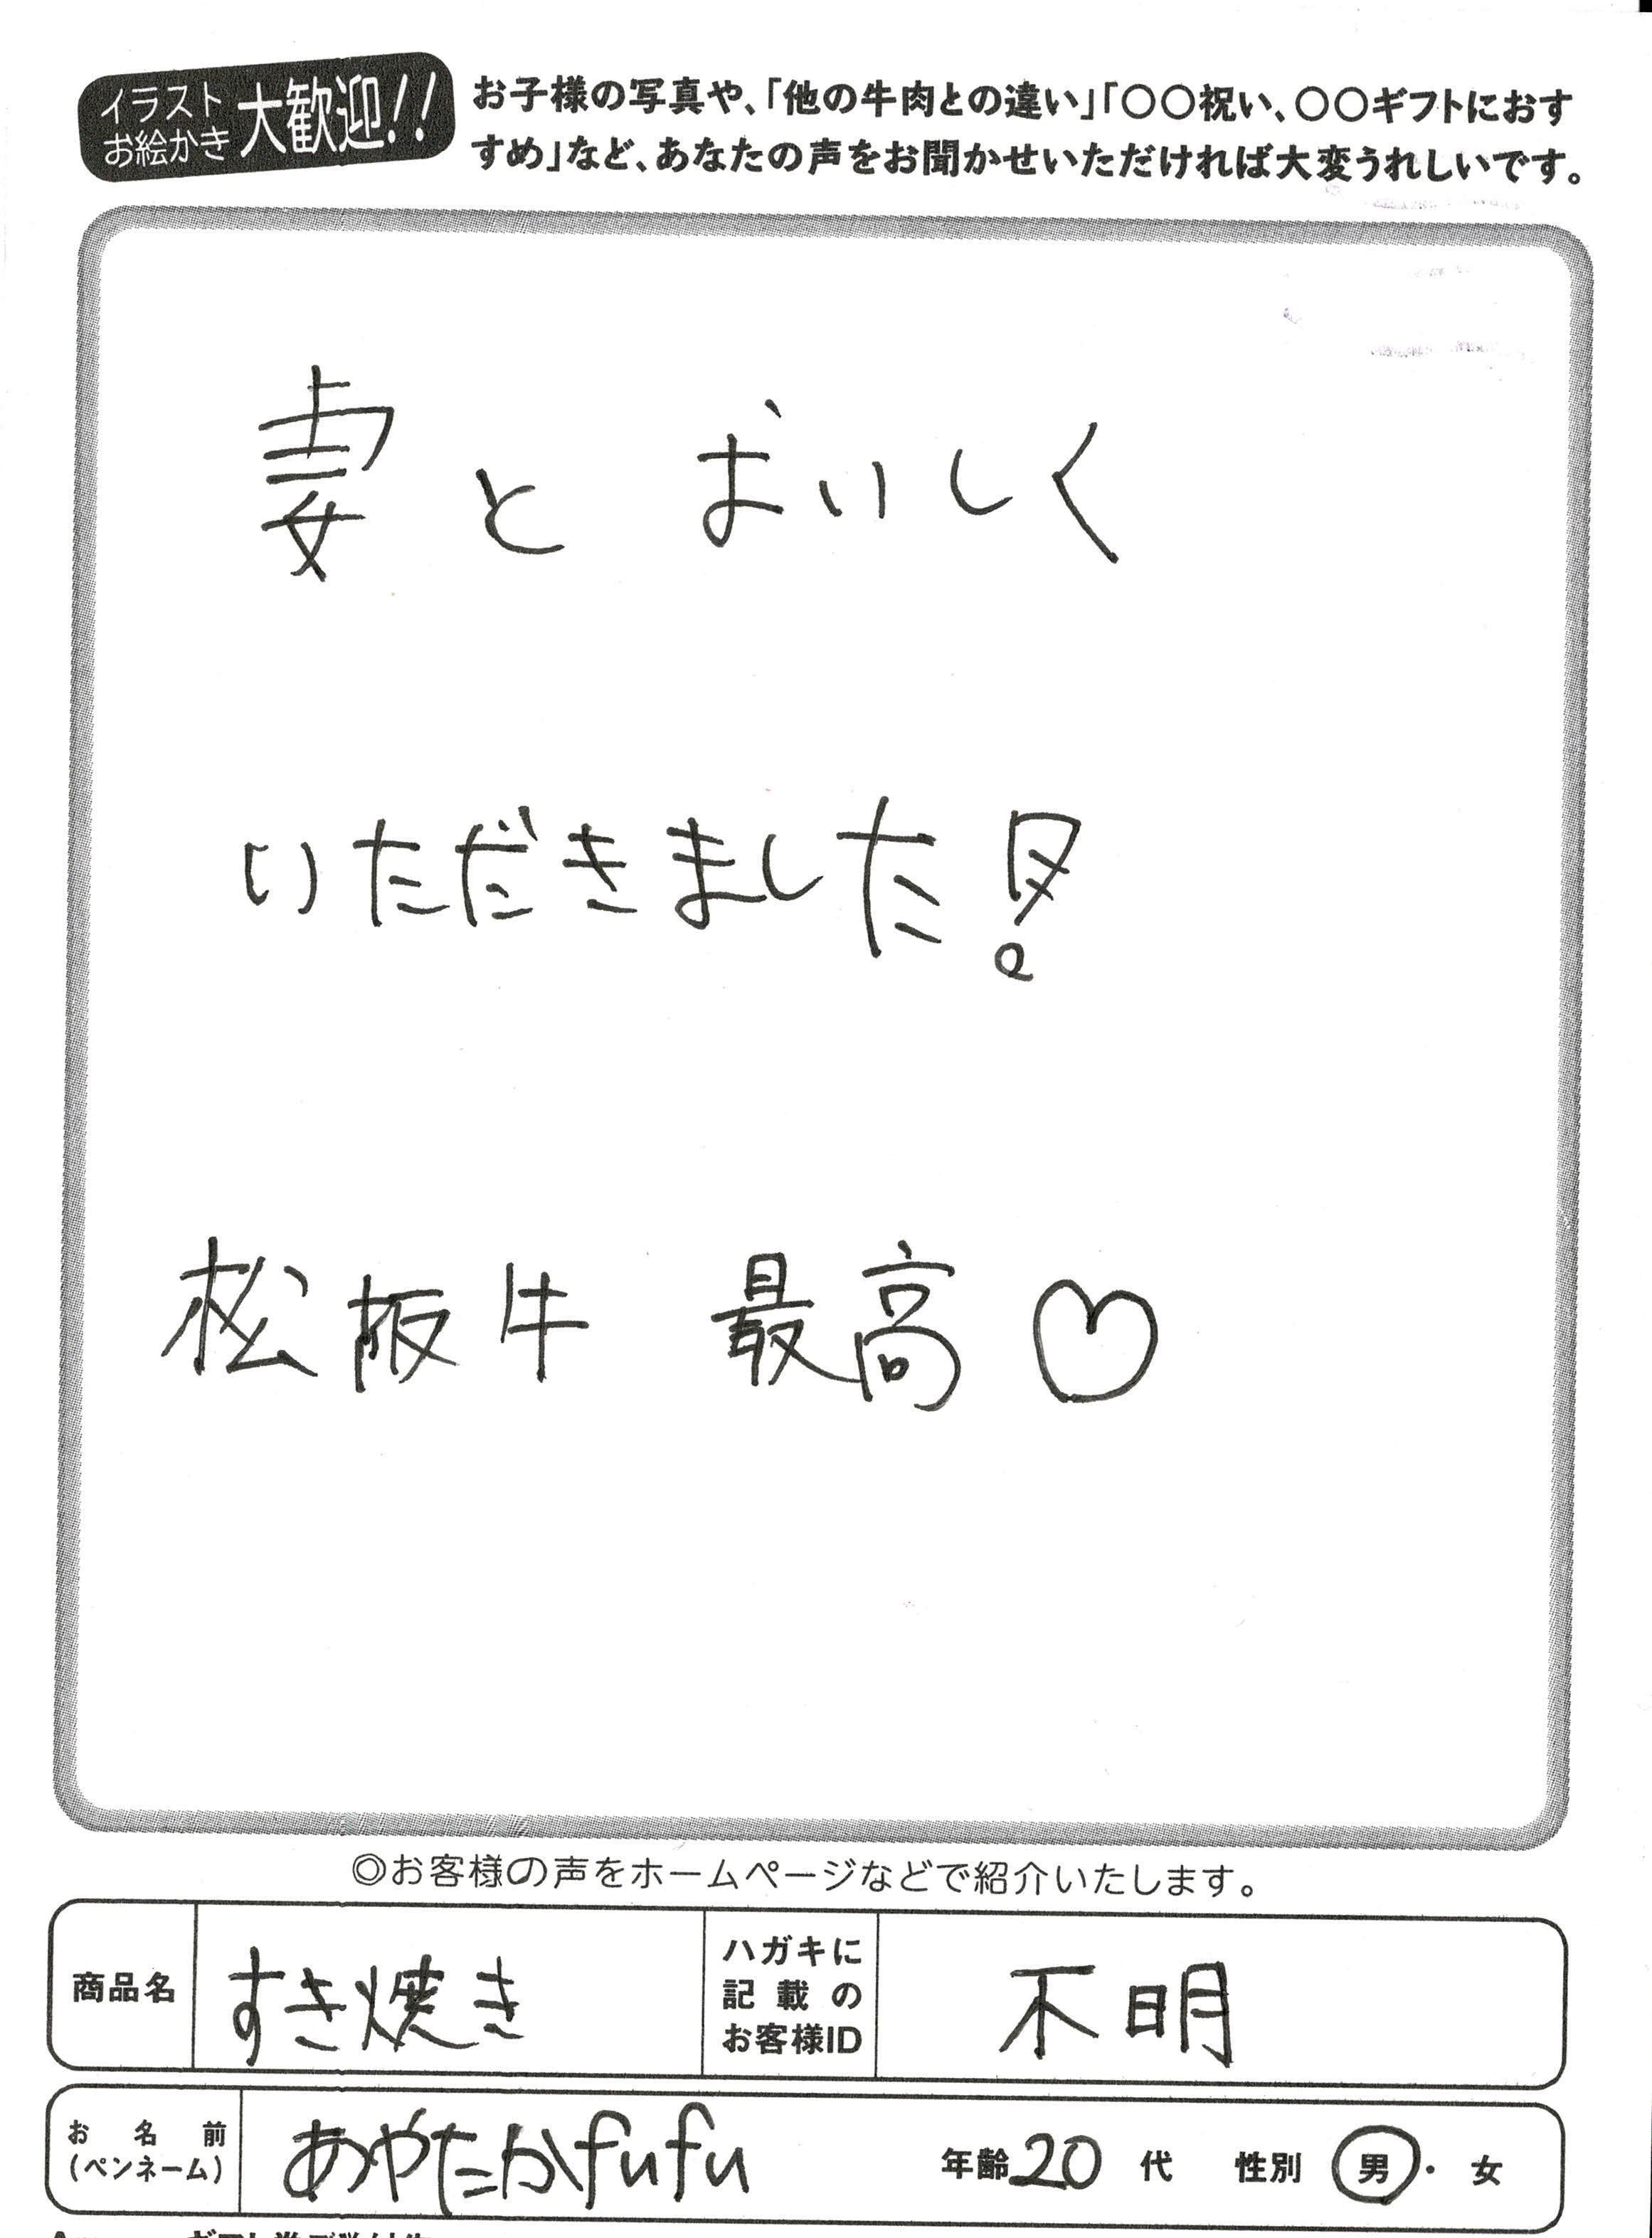 イラスト
お絵かき
大歓迎!!
お子様の写真や、「他の牛肉との違い」「〇〇祝い、〇〇ギフトにおす
すめ」など、あなたの声をお聞かせいただければ大変うれしいです。
妻と おいしく
いただきました!
松阪牛 最高♡
◎お客様の声をホームページなどで紹介いたします。
商品名 すき焼き
ハガキに
記載の
お客様ID
不明
お名前
(ペンネーム)
あやたかfufu
年齢20代 性別 男・女